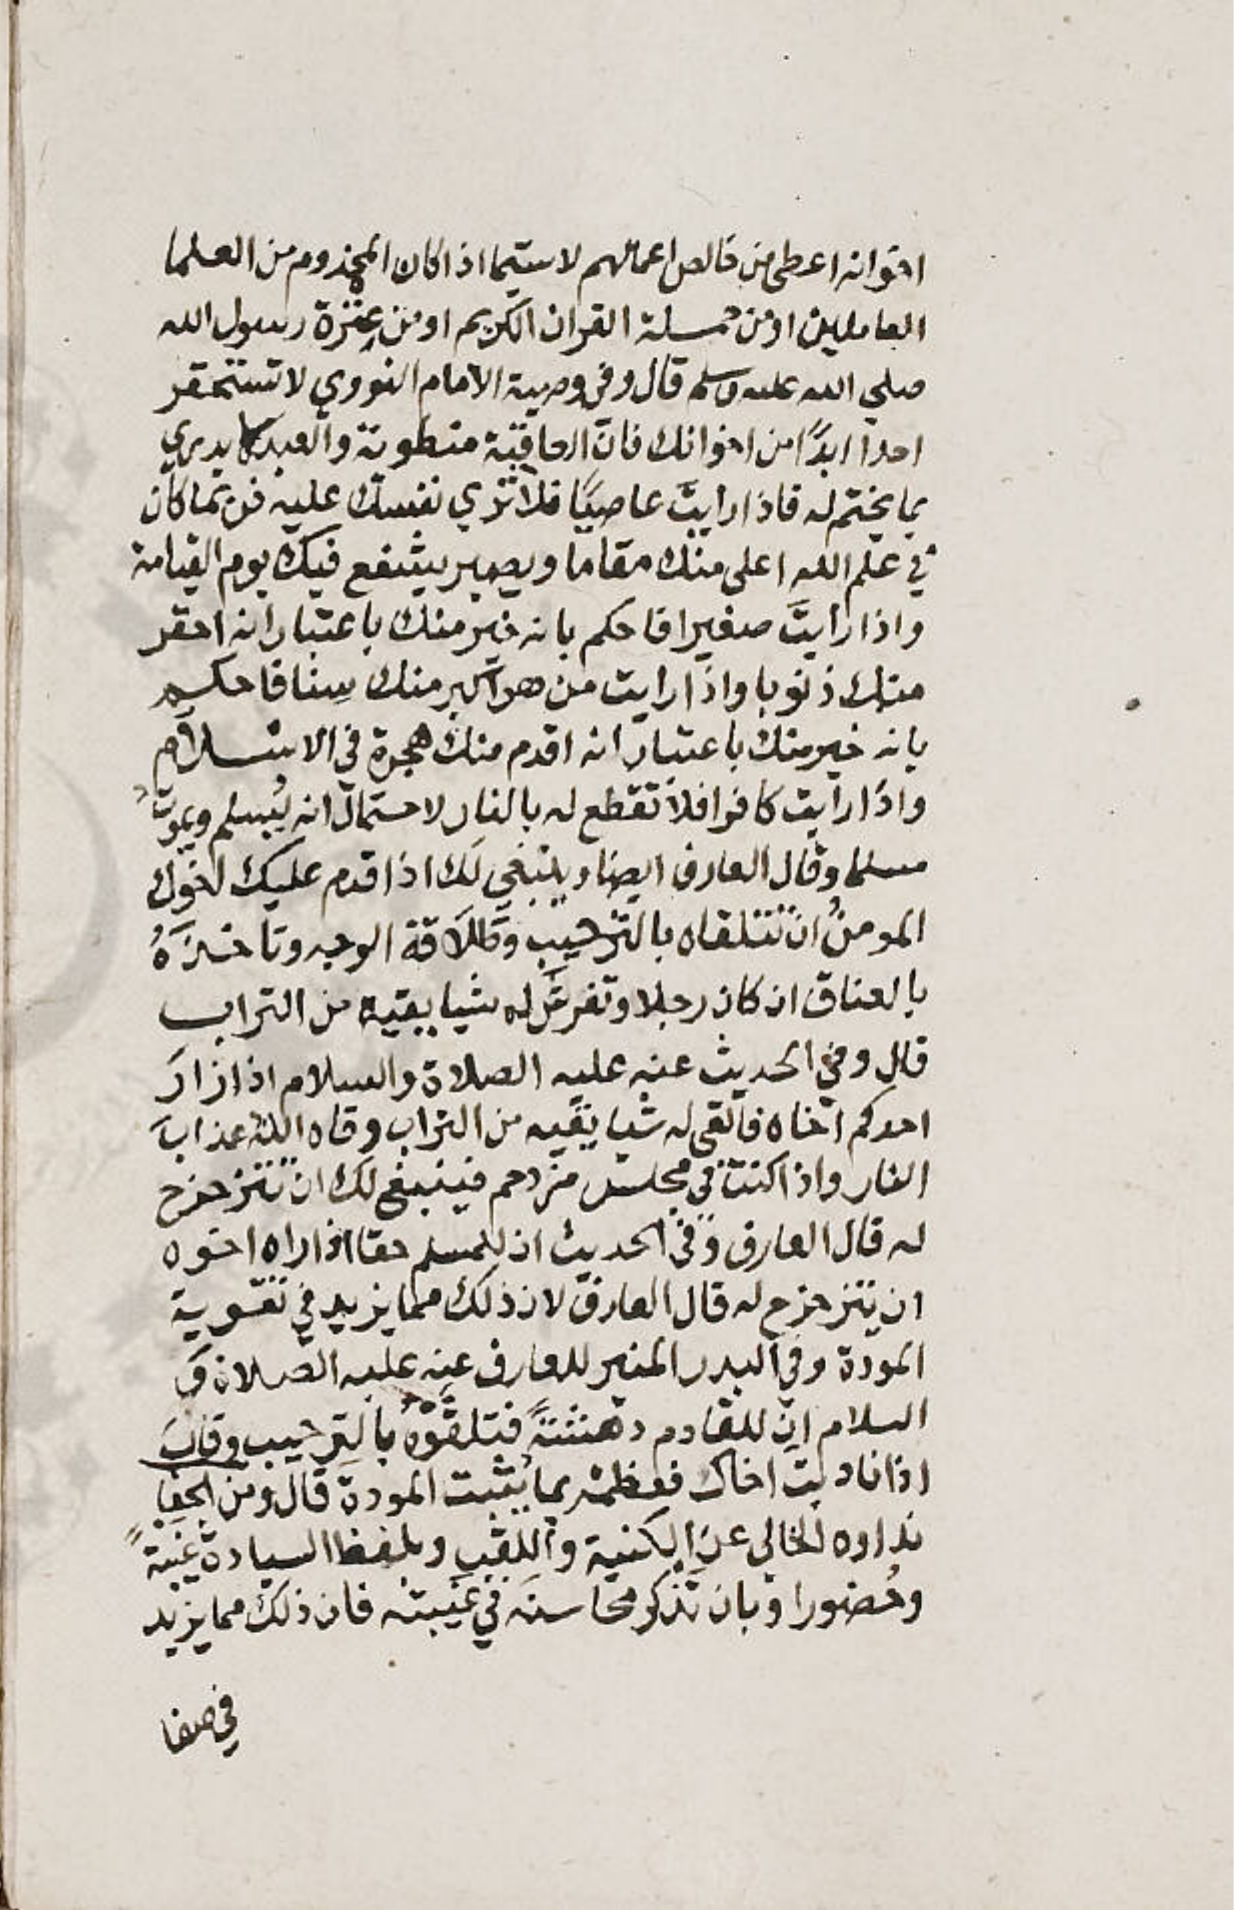 اخوانه اعطي من خالص اعمالهم لا سيما اذا كان المخدوم من العلما
العاملين او من حملة القران الكريم او من عِترة رسول الله
صلي الله عليه وسلم قال وفي وصية الامام النووي لا تستحقر
احدا ابدًا من اخوانك فان العاقبة منطوية والعبد لا يدري
بما يختم له فاذا رايت عاصيًا فلا تري نفسك عليه فربما كان
في علم الله اعلي منك مقاما ويصير يشفع فيك يوم القيامة
واذا رايتَ صغيرا فاحكم بانه خير منك باعتبار انه احقر
منك ذنوبا واذا رايت من هو اكبر منك سِنا فاحكم
بانه خير منك باعتبار انه اقدم منك هجرة في الاسلام
واذا رايت كافرا فلا تقطع له بالنار لاحتمال انه يُسلم ويموتُ
مسلما وقال العارف ايضا وينبغي لك اذا قدم عليك اخوك
المومنُ ان تتلقاه بالترحيب وطلاقة الوجه وتاخذَهُ
بالعناق ان كان رجلا وتفرشَ له شيا يقيه من التراب
قال وفي الحديث عنه عليه الصلاة والسلام اذا زارَ
احدكم اخاه فالقي له شيا يقيه من التراب وقاه اللهُ عذابَ
النار واذا كنت في مجلس مزدحم فينبغي لك ان تتزحزح
له قال العارف وفي الحديث ان للمسلم حقا اذا راه اخوه
ان يتزحزح له قال العارف لان ذلك مما يزيد في تقوية
المودة وفي البدر المنير للعارف عنه عليه الصلاة و
السلام ان للقادم دهشتةً فتلقَّوْهُ بالترحيب وقال
اذا ناديت اخاك فعظمْه بما يُثبت المودة قال ومن الجفا
نداوه الخالي عن الكنية واللقب وبلفظ السيادة غيبةً
وحُضورا وبان تذكر محاسنَه في غيبته فان ذلك مما يزيد
في صفا